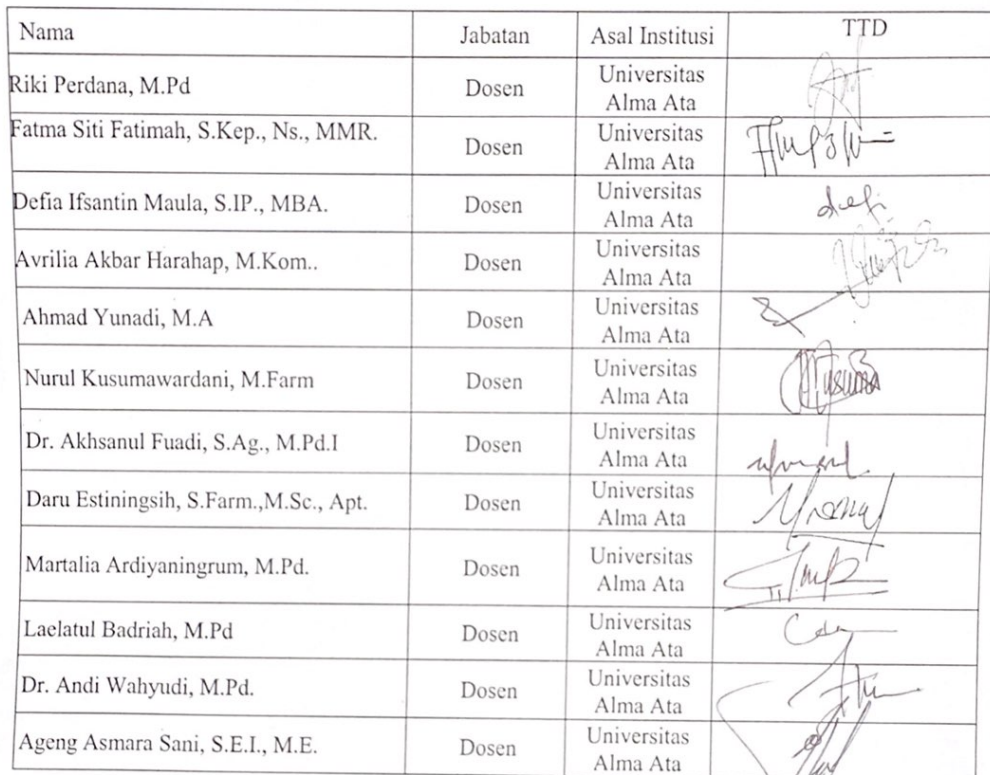 Nama Jabatan Asal Institusi TTD
Riki Perdana, M.Pd Dosen Universitas Alma Ata
Fatma Siti Fatimah, S.Kep., Ns., MMR. Dosen Universitas Alma Ata
Defia Ifsantin Maula, S.IP., MBA. Dosen Universitas Alma Ata defi
Avrilia Akbar Harahap, M.Kom.. Dosen Universitas Alma Ata
Ahmad Yunadi, M.A Dosen Universitas Alma Ata
Nurul Kusumawardani, M.Farm Dosen Universitas Alma Ata
Dr. Akhsanul Fuadi, S.Ag., M.Pd.I Dosen Universitas Alma Ata
Daru Estiningsih, S.Farm.,M.Sc., Apt. Dosen Universitas Alma Ata
Martalia Ardiyaningrum, M.Pd. Dosen Universitas Alma Ata
Laelatul Badriah, M.Pd Dosen Universitas Alma Ata
Dr. Andi Wahyudi, M.Pd. Dosen Universitas Alma Ata
Ageng Asmara Sani, S.E.I., M.E. Dosen Universitas Alma Ata